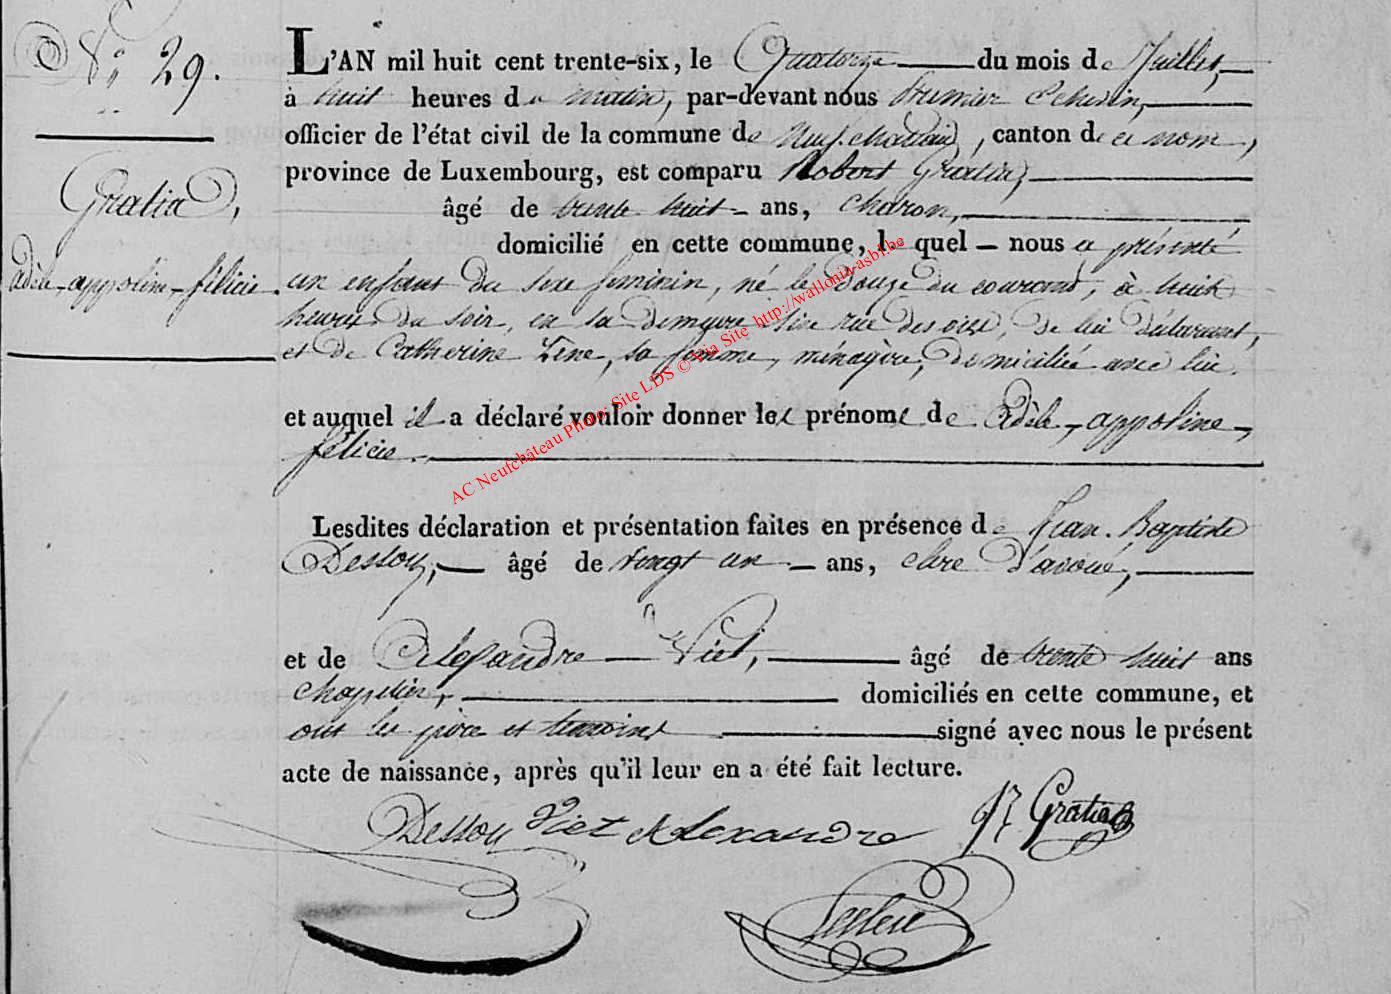 N° 29.
Gratia,
adèle, appoline, félicie.
L'AN mil huit cent trente-six, le Quatorze du mois de Juillet,
à huit heures du matin, par-devant nous premier Echevin,
officier de l'état civil de la commune de Neufchateau, canton de ce nom,
province de Luxembourg, est comparu Robert Gratia,
âgé de trente huit ans, charon,
domicilié en cette commune, le quel nous a présenté
un enfant du sexe feminin, né le Douze du courant, à huit
heures du soir, en sa demeure sise rue de , de lui déclarant,
et de Catherine Zène, sa femme, ménagère, domiciliée avec lui.
et auquel il a déclaré vouloir donner les prénoms de Adèle, appoline,
félicie.
Lesdites déclaration et présentation faites en présence de Jean Baptiste
Dessoy, âgé de vingt un ans, clerc d'avoué,
et de Alexandre Viet, âgé de trente huit ans
chapelier, domiciliés en cette commune, et
ont les père et temoins signé avec nous le présent
acte de naissance, après qu'il leur en a été fait lecture.
Dessoy Viet Alexandre R Gratia
AC Neufchâteau Photo: Site LDS © Via Site http://wallonia-asbl.be